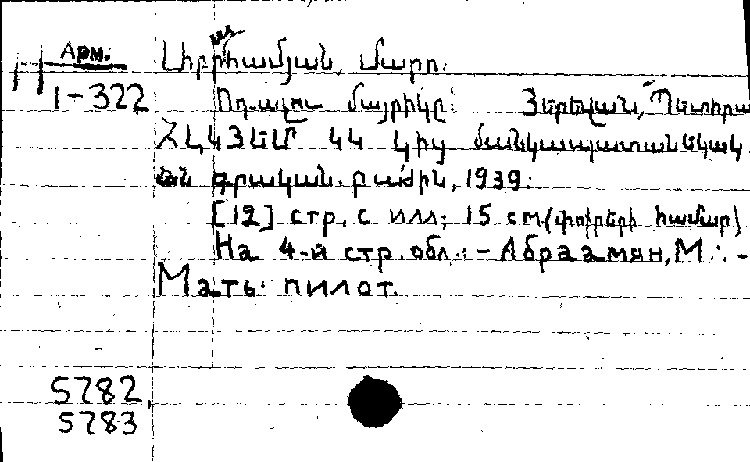 Арм. Աբրահամյան, Մարո.
1-322 Օդաչու մայրիկը: Յերեվան, Պետհրա
ՀԼԿՅԵՄ ԿԿ կից մանկապատանեկակ
ան գրական բաժին, 1939:
[12] стр. с илл; 15 см (փոքրերի համար)
На 4-й стр. обл.: - Абраамян, М.: -
Мать пилот.
5782
5783